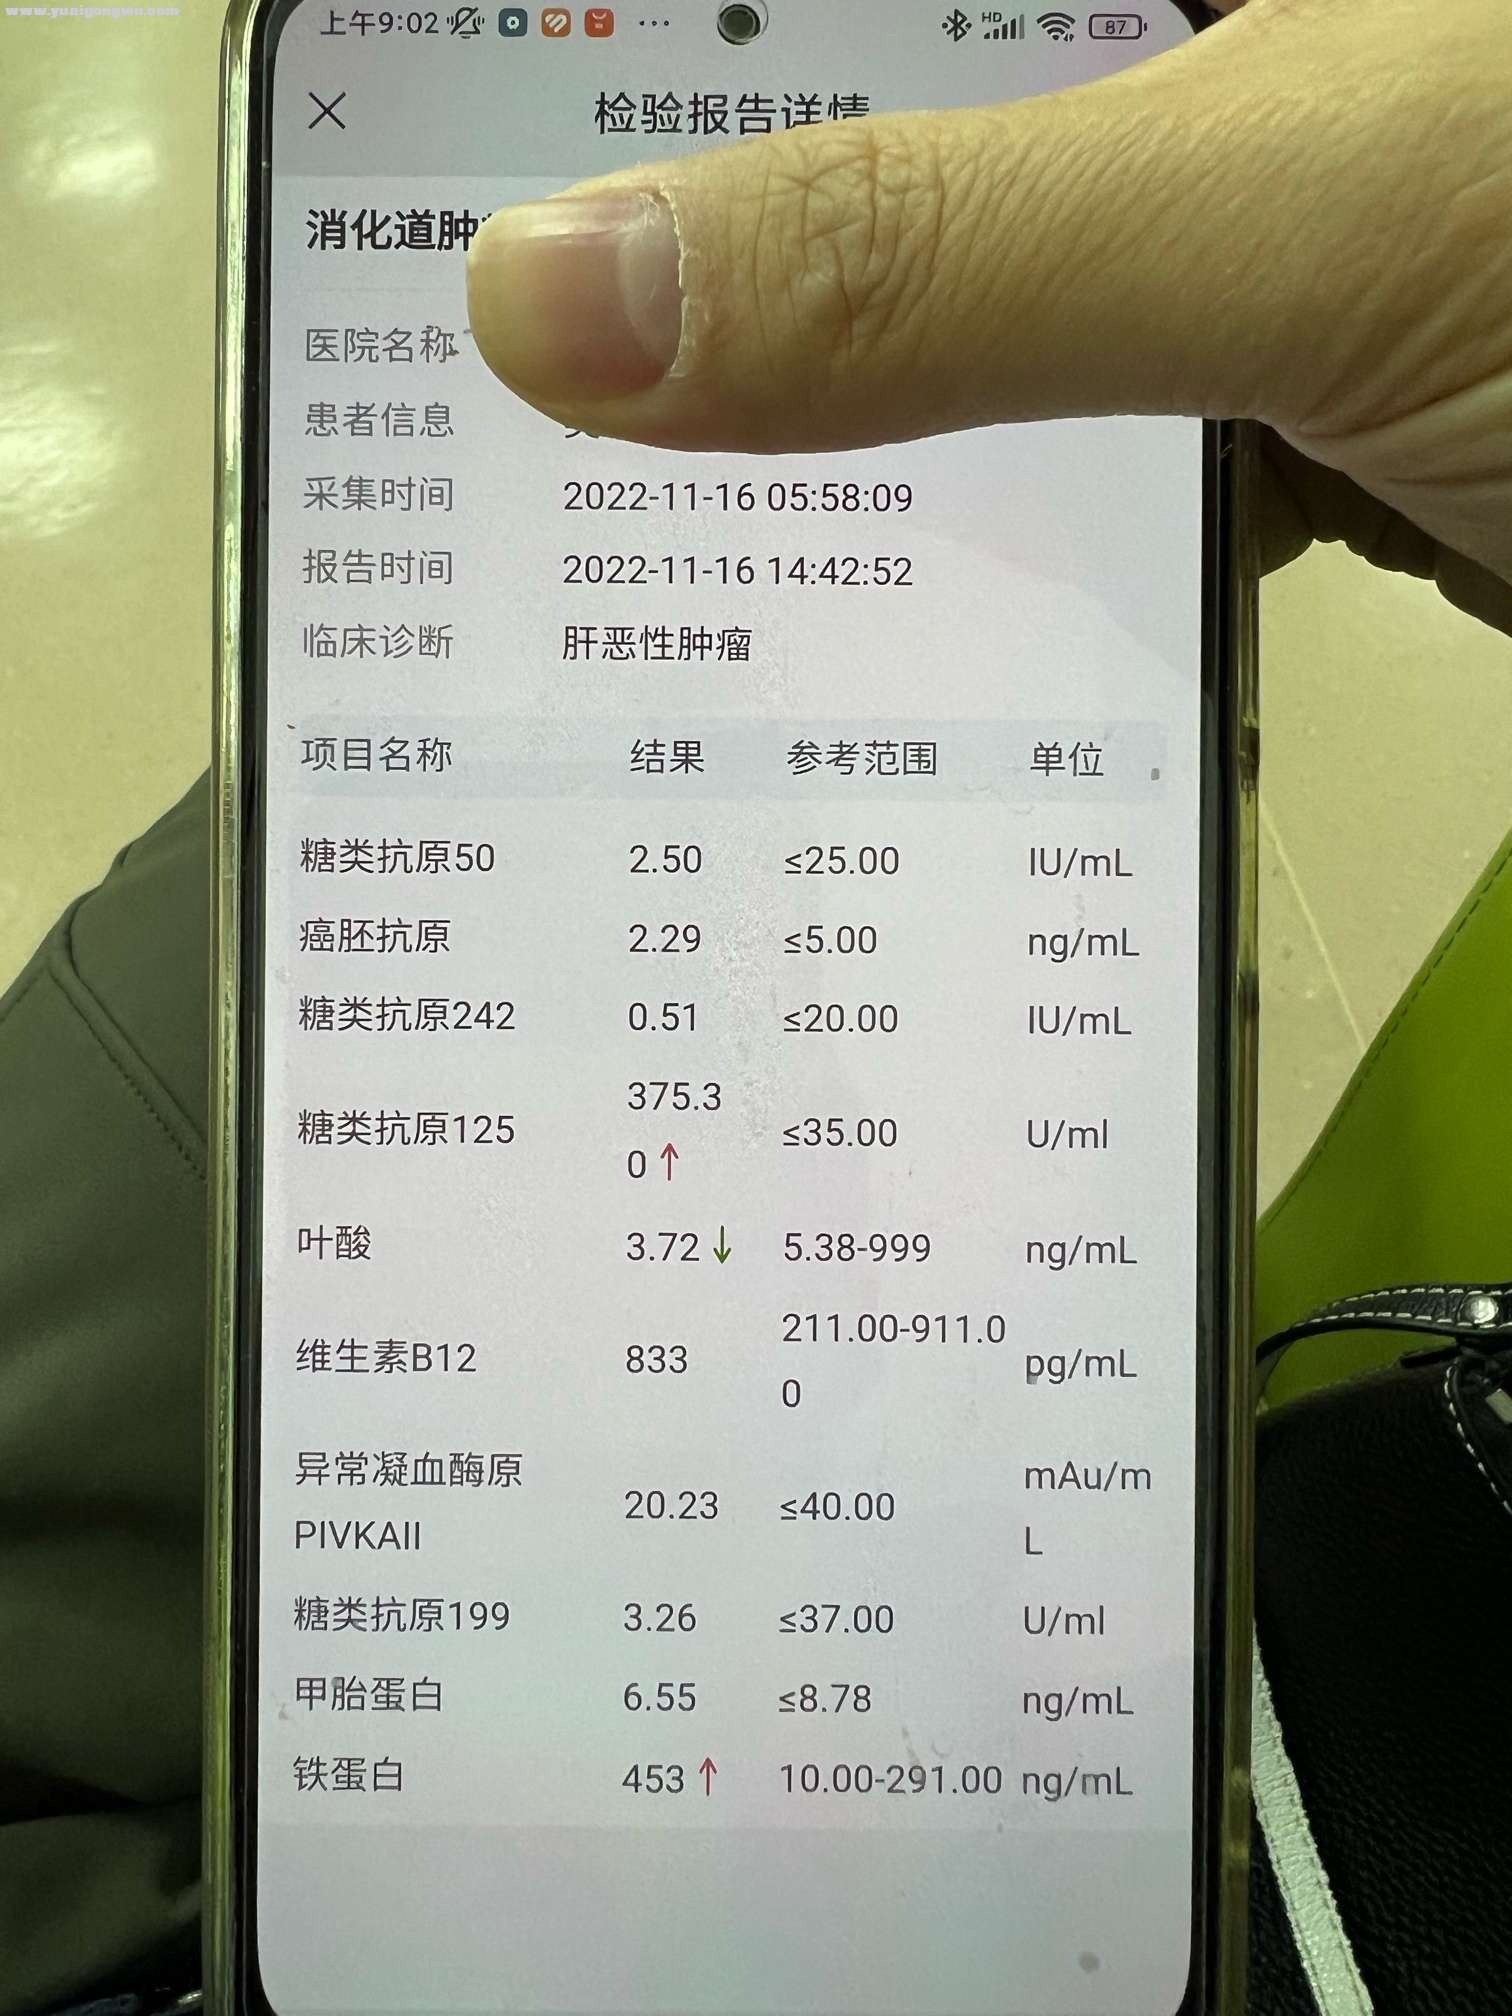 www.yunigongwu.com
上午9:02 HD 87
检验报告详情
消化道肿
医院名称
患者信息
采集时间 2022-11-16 05:58:09
报告时间 2022-11-16 14:42:52
临床诊断 肝恶性肿瘤
项目名称 结果 参考范围 单位
糖类抗原50 2.50 ≤25.00 IU/mL
癌胚抗原 2.29 ≤5.00 ng/mL
糖类抗原242 0.51 ≤20.00 IU/mL
375.3
糖类抗原125 ≤35.00 U/ml
0↑
叶酸 3.72↓ 5.38-999 ng/mL
211.00-911.0
维生素B12 833 pg/mL
0
异常凝血酶原 mAu/m
20.23 ≤40.00
PIVKAII L
糖类抗原199 3.26 ≤37.00 U/ml
甲胎蛋白 6.55 ≤8.78 ng/mL
铁蛋白 453↑ 10.00-291.00 ng/mL